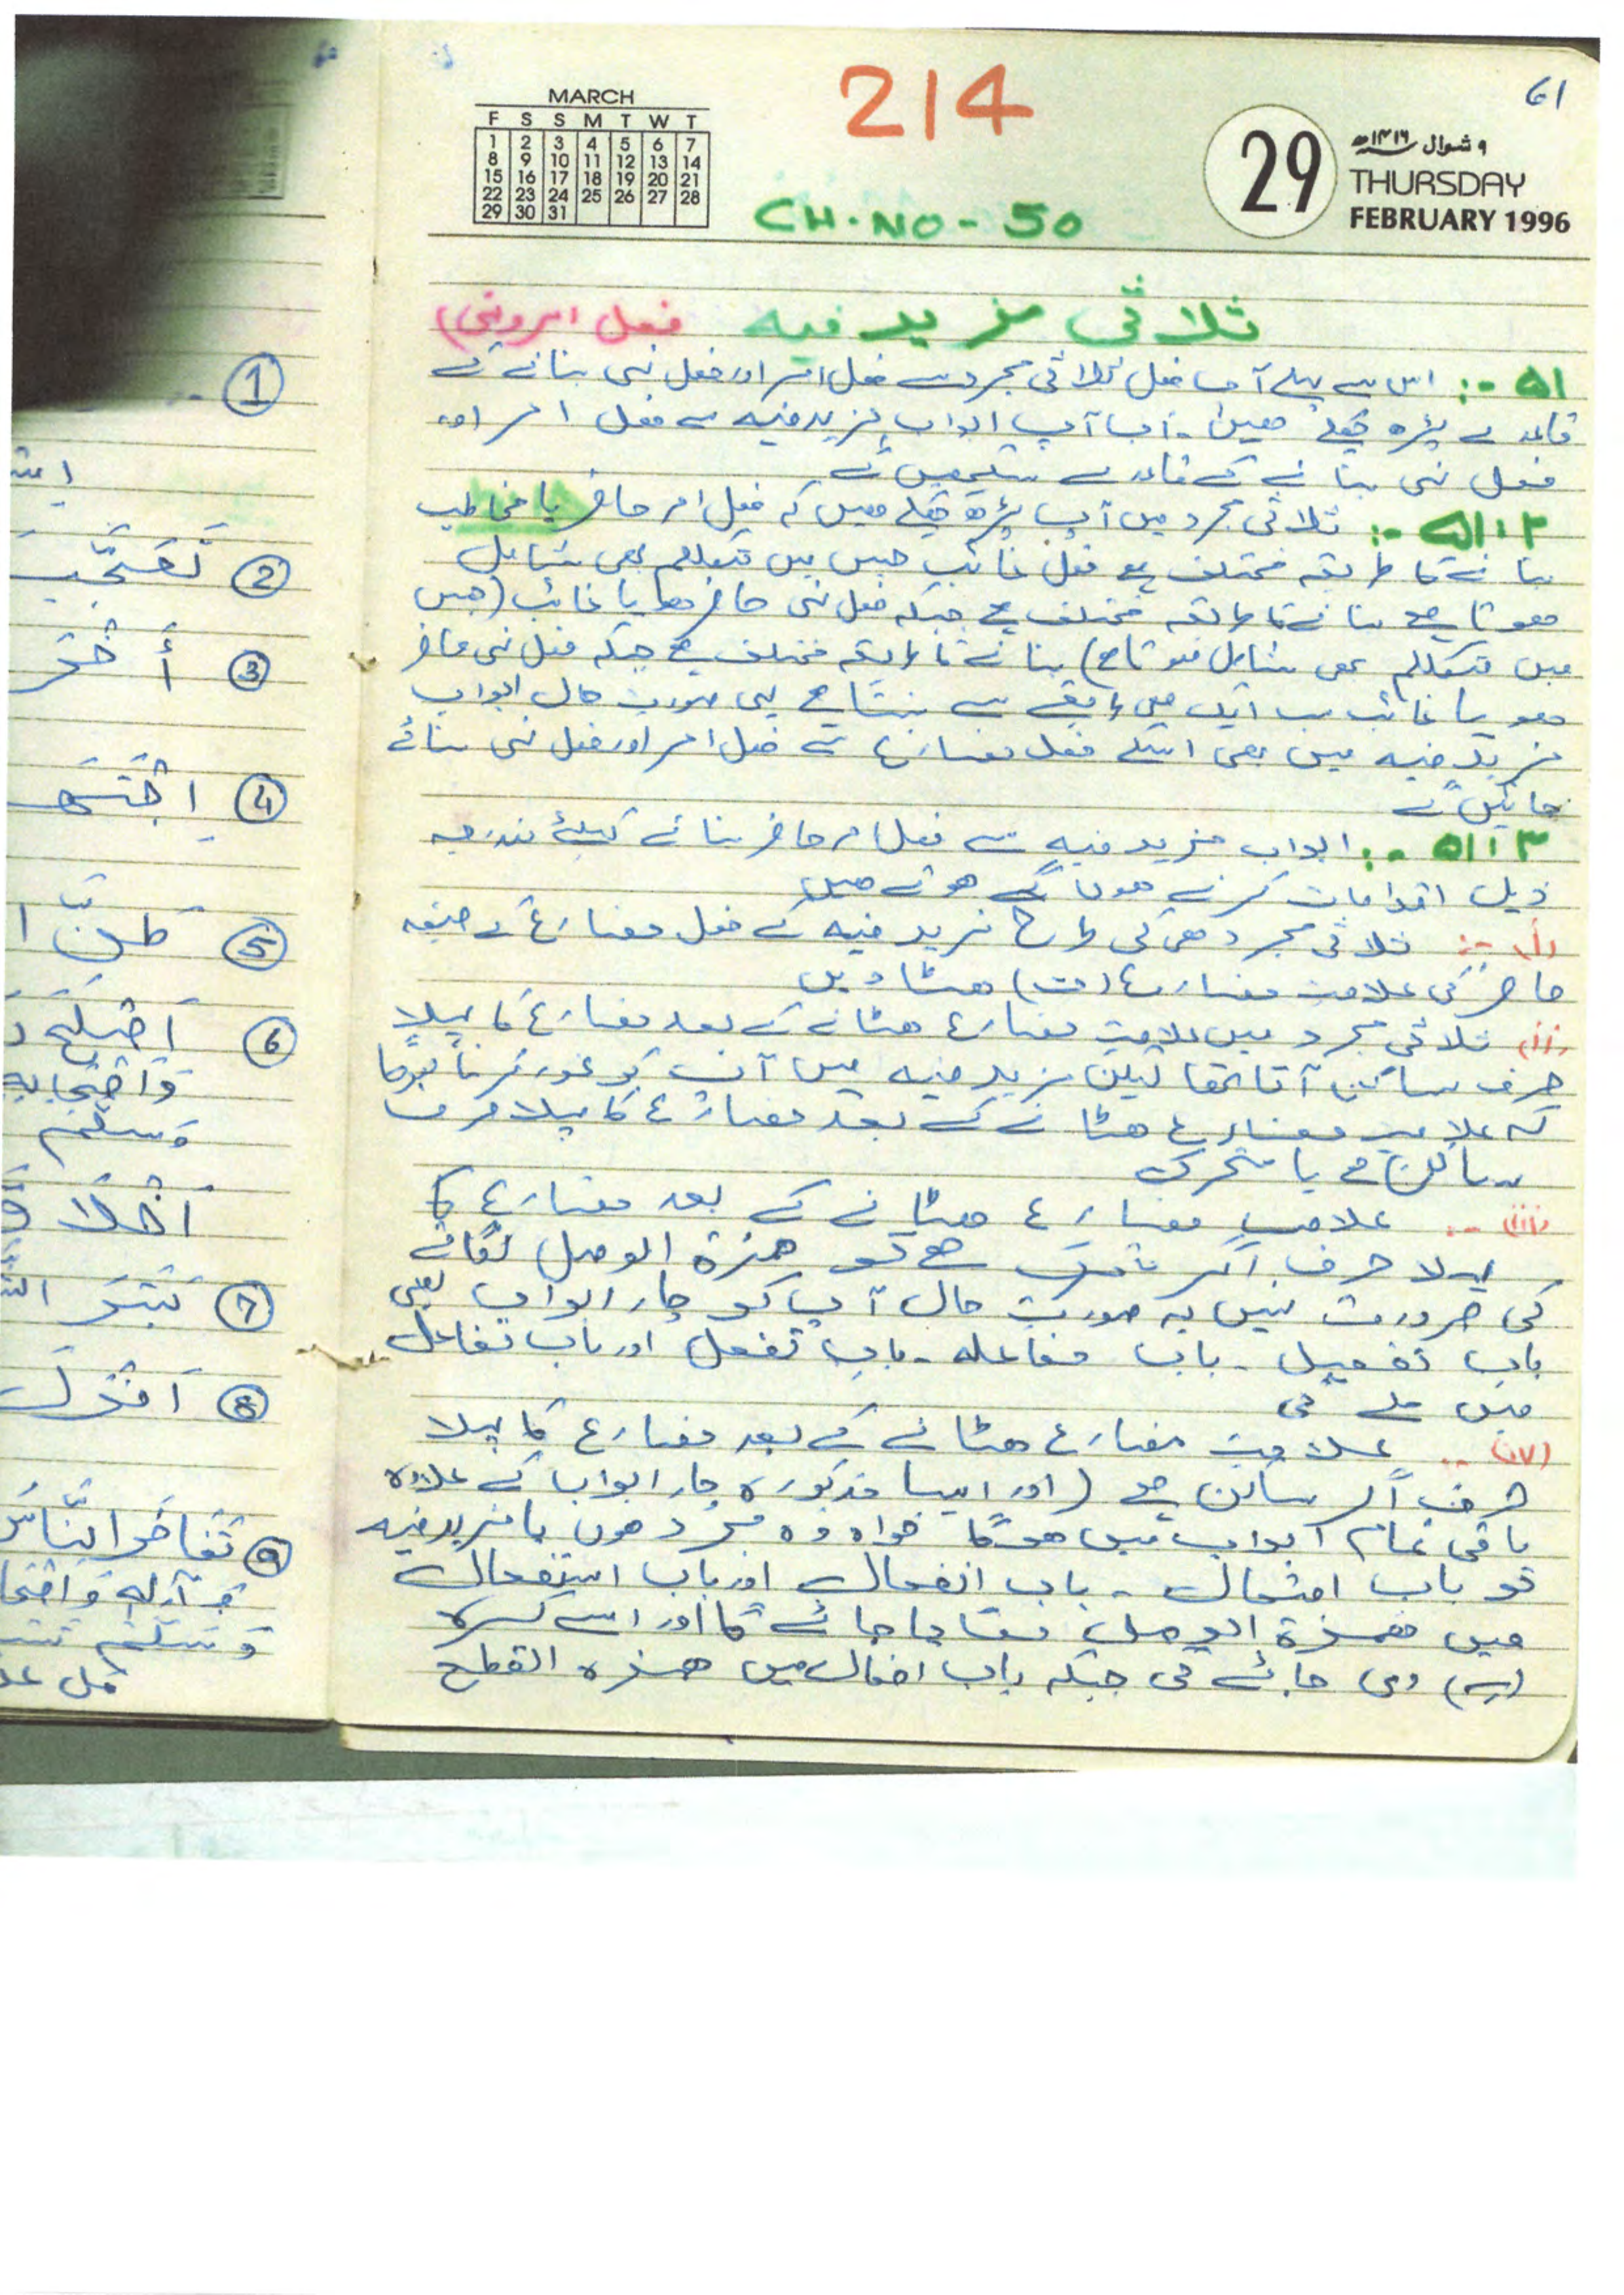 61
214
MARCH
F S S M T W T
1 2 3 4 5 6 7
8 9 10 11 12 13 14
15 16 17 18 19 20 21
22 23 24 25 26 27 28
29 30 31
29
۹ شوال ۱۴۱۶ھ
THURSDAY
FEBRUARY 1996
CH. NO - 50
ثلاثی مزید فیہ فعل امر ونہی)
۵۱ :- اس سے پہلے آپ فعل ثلاثی مجرد سے فعل امر اور فعل نہی بنانے کے
قاعدے پڑھ چکے ہیں۔ اب آپ ابواب مزید فیہ سے فعل امر اور
فعل نہی بنانے کے قاعدے سیکھیں گے
۵۱:۲ :- ثلاثی مجرد میں آپ پڑھ چکے ہیں کہ فعل امر حاضر یا مخاطب
بنانے کا طریقہ مختلف ہے فعل غائب جس میں متکلم بھی شامل
ہوتا ہے بنانے کا طریقہ مختلف ہے جبکہ فعل نہی حاضر ہو یا غائب (جس
میں متکلم بھی شامل ہوتا ہے) بنانے کا طریقہ مختلف ہے جبکہ فعل نہی حاضر
ہو یا غائب سب ایک ہی طریقے سے بنتا ہے یہی صورت حال ابواب
مزید فیہ میں بھی اسکے فعل مضارع سے فعل امر اور فعل نہی بنائے
جائیں گے
۵۱:۳ :- ابواب مزید فیہ سے فعل امر حاضر بنانے کیلئے مندرجہ
ذیل اقدامات کرنے ہوں گے ہوتے ہیں
(i) :- ثلاثی مجرد ہی کی طرح مزید فیہ کے فعل مضارع کے صیغہ
حاضر کی علامت مضارع (ت) ہٹا دیں
(ii) ثلاثی مجرد میں علامت مضارع ہٹانے کے بعد مضارع کا پہلا
حرف ساکن آتا تھا لیکن مزید فیہ میں آپ کو غور کرنا ہوگا
کہ علامت مضارع ہٹانے کے بعد مضارع کا پہلا حرف
ساکن ہے یا متحرک
(iii) :- علامت مضارع ہٹانے کے بعد مضارع کا
پہلا حرف اگر متحرک ہے تو ھمزۃ الوصل لگانے
کی ضرورت نہیں یہ صورت حال آپ کو چار ابواب یعنی
باب تفعیل - باب مفاعلہ - باب تفعل اور باب تفاعل
میں ملے گی
(iv) :- علامت مضارع ہٹانے کے بعد مضارع کا پہلا
حرف اگر ساکن ہے (اور ایسا مذکورہ چار ابواب کے علاوہ
باقی تمام ابواب میں ہوگا خواہ وہ مجرد ہوں یا مزید فیہ
تو باب افتعال - باب انفعال اور باب استفعال
میں ھمزۃ الوصل لگایا جائے گا اور اسے کسرہ
(ـِ) دی جائے گی جبکہ باب افعال میں ھمزہ القطع
①
②
③
④
⑤
⑥
وَسَلَّمَ
⑦
⑧
⑨